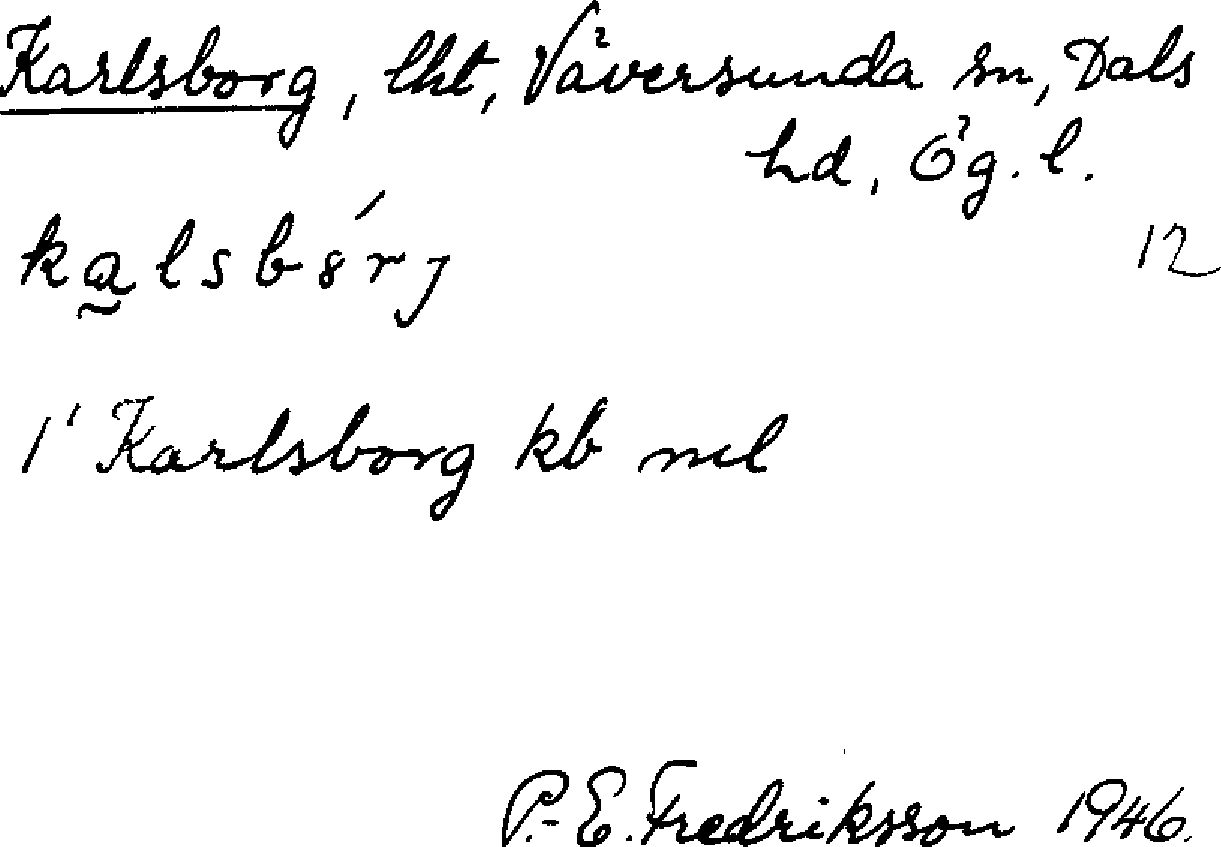 Karlsborg, lht, Väversunda sn, Dals
hd, Ög. l.
12
kalsbórj
1' Karlsborg kb ml
P.-E. Fredriksson 1946.